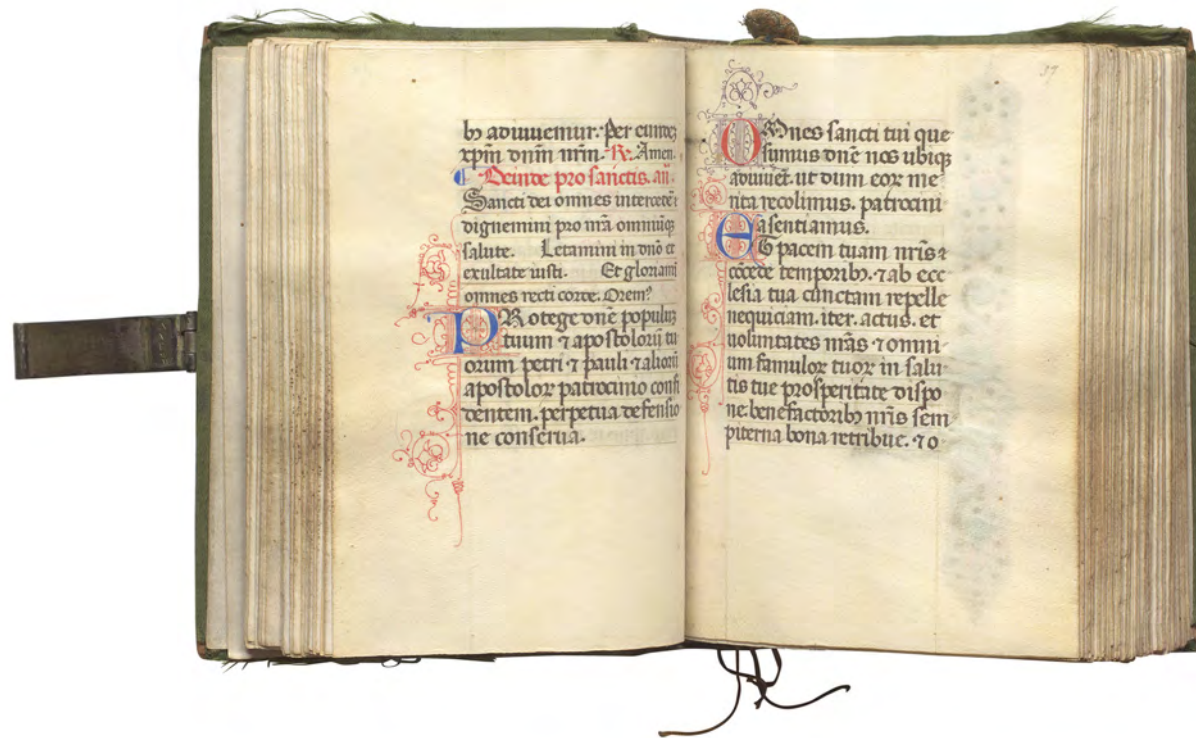 bꝫ adiuuemur. Per eundeꝫ
xp̄m dn̄m nr̄m. ℟. Amen.
Deinde pro sanctis. an̄.
Sancti dei omnes intercede
dignemini pro nr̄a omniuꝫqꝫ
salute. Letamini in dn̄o et
exultate iusti. Et gloriami
omnes recti corde. Orem
PRotege dn̄e populuꝫ
tuum ⁊ apostoloꝝ tu
orum petri ⁊ pauli ⁊ alioꝝ
apostoloꝝ patrocinio confi
dentem. perpetua defensio
ne conserua.
37
OMnes sancti tui que
sumus dn̄e nos ubiqꝫ
adiuuēt. ut dum eoꝝ me
rita recolimus. patrocini
a sentiamus.
ET pacem tuam nr̄is
cōcede temporibꝫ. ⁊ ab ecc
lesia tua cunctam repelle
nequiciam. iter. actus. et
uoluntates nr̄as ⁊ omni
um famuloꝝ tuoꝝ in salu
tis tue prosperitate dispo
ne. benefactoribꝫ nr̄is sem
piterna bona retribue. ⁊ o